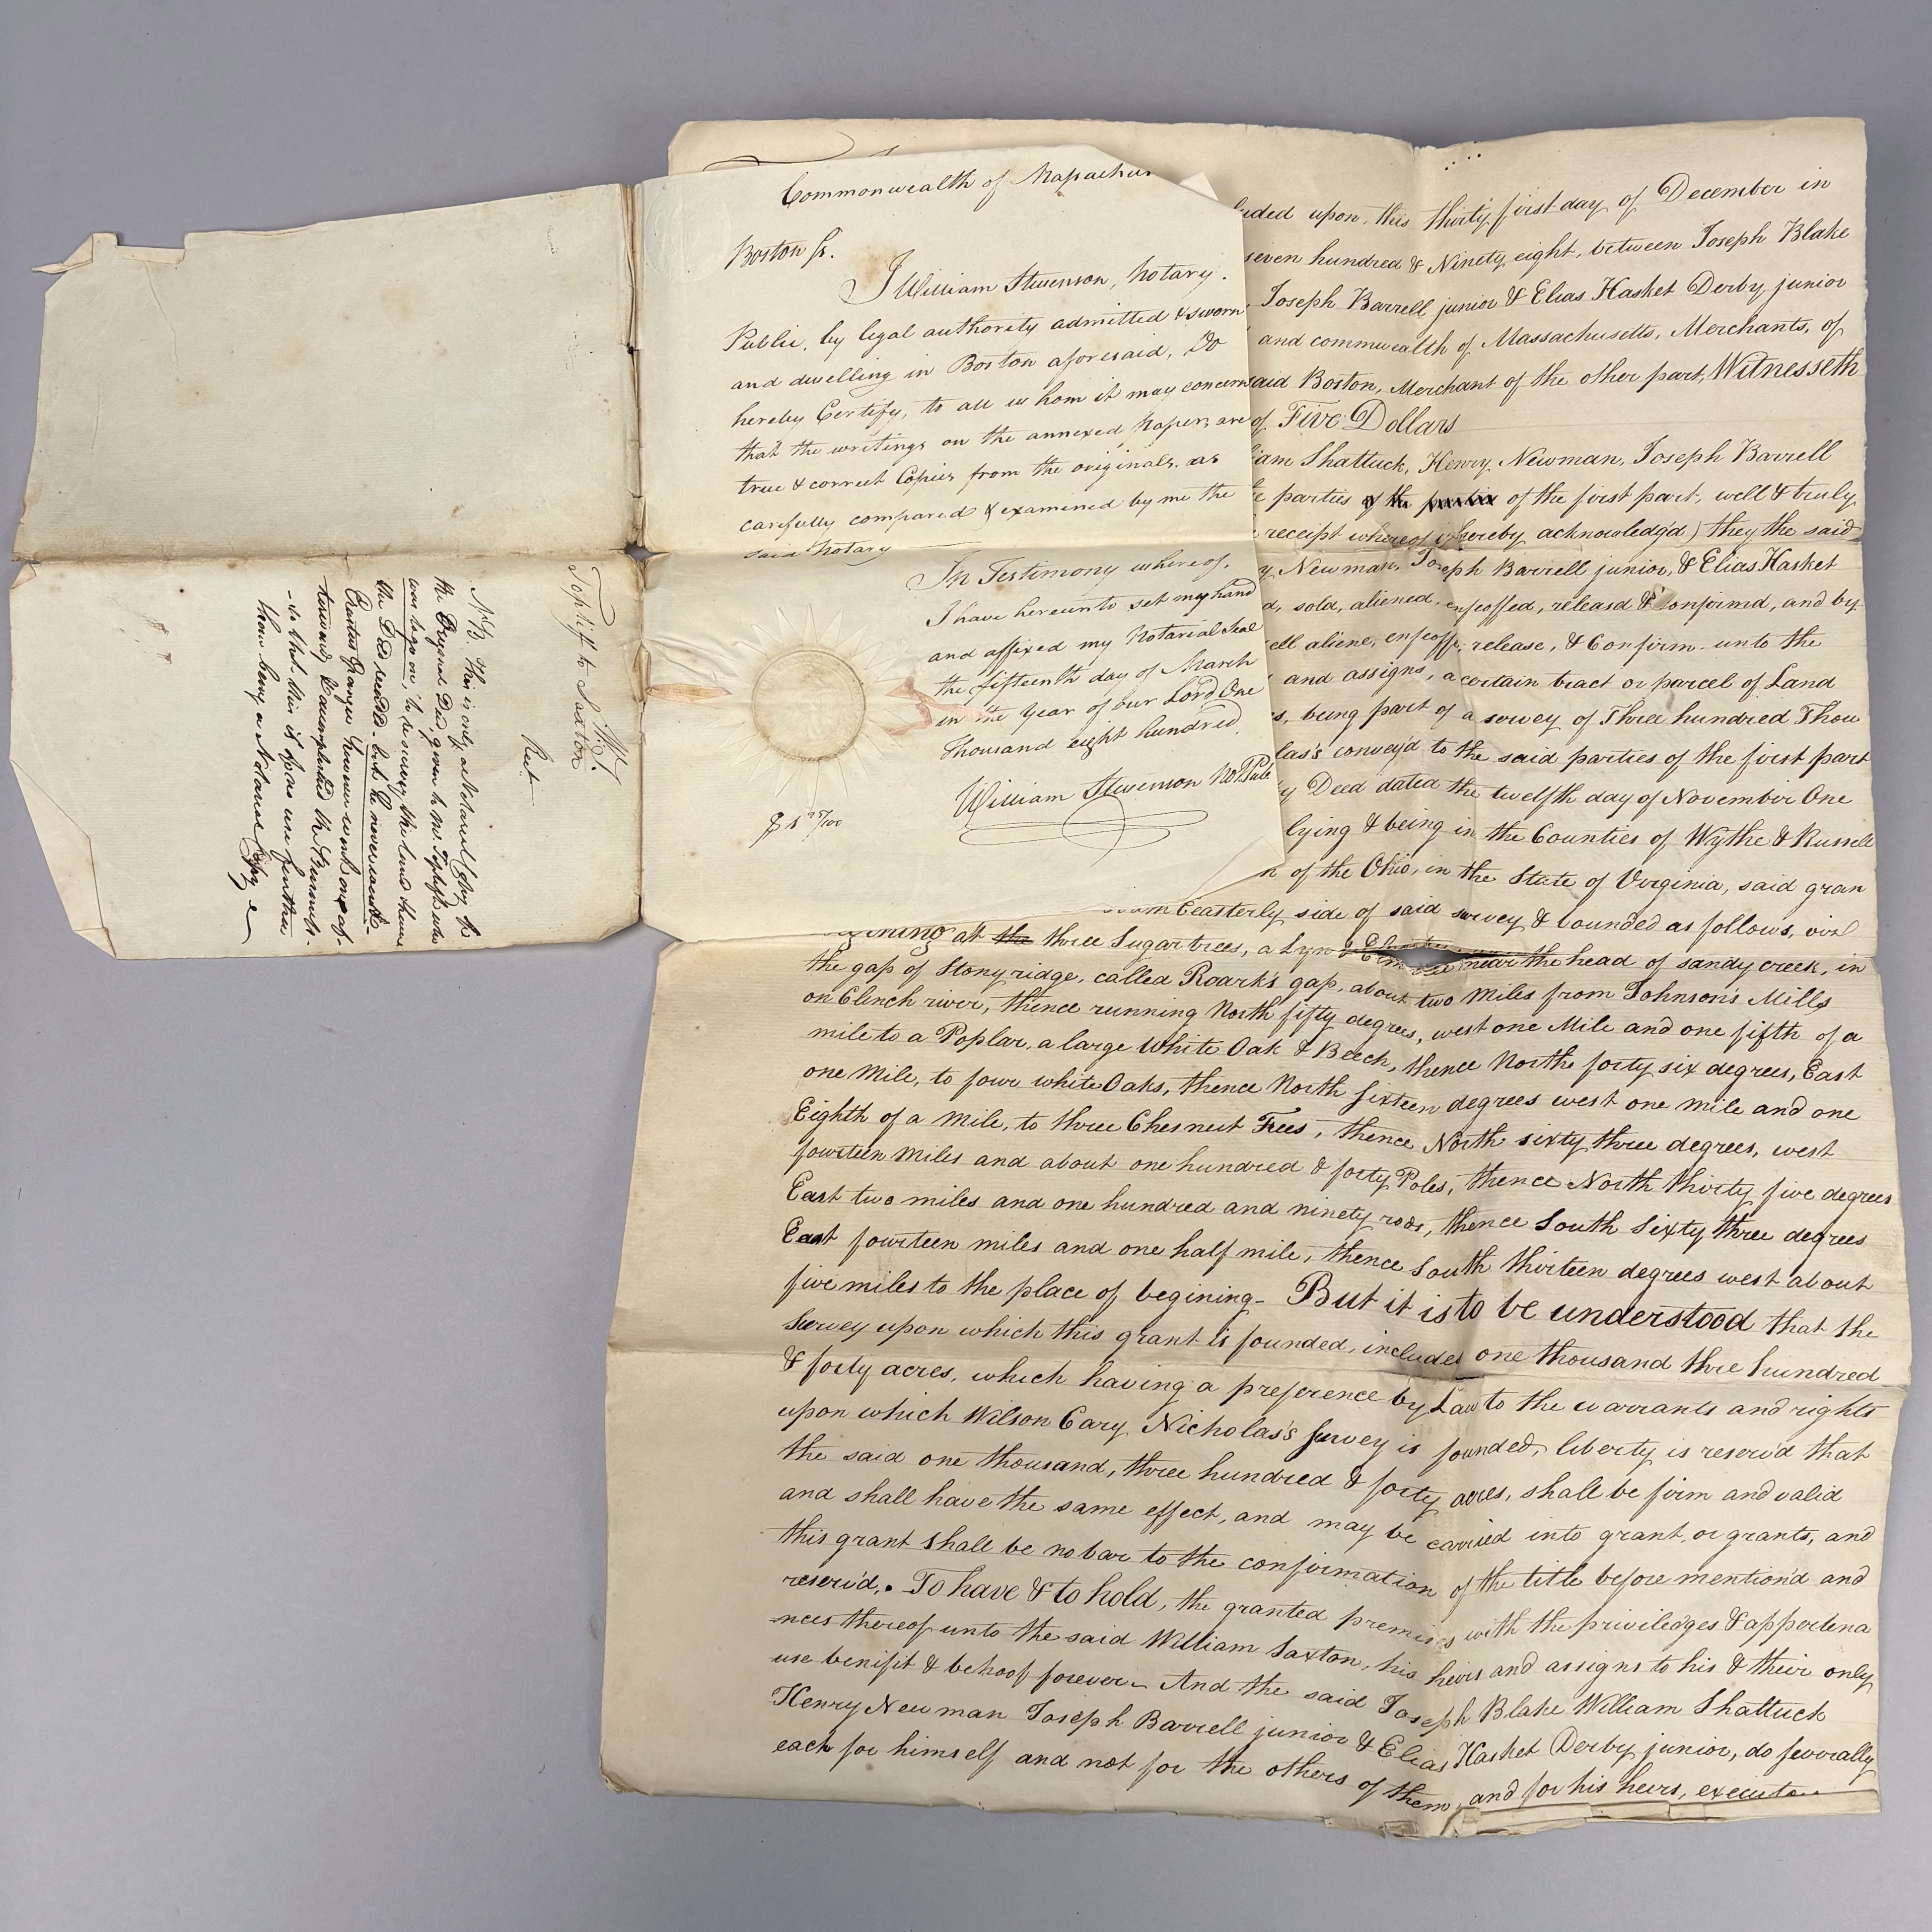 Commonwealth of Massachus
Boston ss.
I William Stevenson, Notary
Public, by legal authority admitted & sworn
and dwelling in Boston aforesaid, Do
hereby Certify, to all whom it may concern
that the writings on the annexed Papers, are
true & correct Copies from the originals, as
carefully compared & examined by me the
said Notary
In Testimony whereof,
I have hereunto set my hand
and affixed my Notarial Seal
the fifteenth day of March
in the year of our Lord One
Thousand eight hundred.
William Stevenson Not Pub
luded upon, this thirty first day of December in
seven hundred & Ninety eight, between Joseph Blake
Joseph Barrell junior & Elias Hasket Derby junior
and commwealth of Massachusetts, Merchants, of
said Boston, Merchant of the other part, Witnesseth
of Five Dollars
iam Shattuck, Henry Newman, Joseph Barrell
parties of the parties of the first part, well & truly
receipt whereof is hereby acknowledg'd) they the said
y Newman, Joseph Barrell junior, & Elias Hasket
d, sold, aliened, enfeoffed, releasd & Confirmd, and by
ell aliene, enfeoff, release, & Confirm unto the
and assigns, a certain tract or parcel of Land
s, being part of a survey of Three hundred Thou
las's convey'd to the said parties of the first part
y Deed dated the twelfth day of November One
lying & being in the Counties of Wythe & Russell
n of the Ohio, in the State of Virginia, said gran
easterly side of said survey & bounded as follows, viz
at the three Sugar trees, a Lyn & Elm near the head of sandy creek, in
the gap of Stony ridge, called Roark's gap, about two Miles from Johnson's Mills
on Clinch river, thence running North fifty degrees, west one Mile and one fifth of a
mile to a Poplar, a large White Oak & Beech, thence North forty six degrees, East
one Mile, to four white Oaks, thence North sixteen degrees west one mile and one
Eighth of a Mile, to three Chesnut Trees, thence North sixty three degrees, west
fourteen Miles and about one hundred & forty Poles, thence North thirty five degrees
East two miles and one hundred and ninety rods, thence South sixty three degrees
East fourteen miles and one half mile, thence South thirteen degrees west about
five miles to the place of begining- But it is to be understood that the
Survey upon which this grant is founded, includes one thousand thre hundred
& forty acres, which having a preference by Law to the warrants and rights
upon which Wilson Cary Nicholas's survey is founded, liberty is reserv'd that
the said one thousand, three hundred & forty acres, shall be firm and valid
and shall have the same effect, and may be carried into grant, or grants, and
this grant shall be no bar to the confirmation of the title before mention'd and
reserv'd. To have & to hold, the granted premises with the priviledges & appertena
nces thereof unto the said William Saxton, his heirs and assigns to his & their only
use benifit & behoof forever- And the said Joseph Blake William Shattuck
Henry Newman Joseph Barrell junior & Elias Hasket Derby junior, do severally
each for himself and not for the others of them, and for his heirs, executo
Topliff to Saxton
N.B. This is only a Notarial Copy of the
Original Deed, given to Mr. Topliff who
was to go on, to survey the land hence
the Deed needed - but he never went.
Erastus Granger however went on af-
terward, & accompleted the business
- so that this is of no use further
than being a Notarial Copy